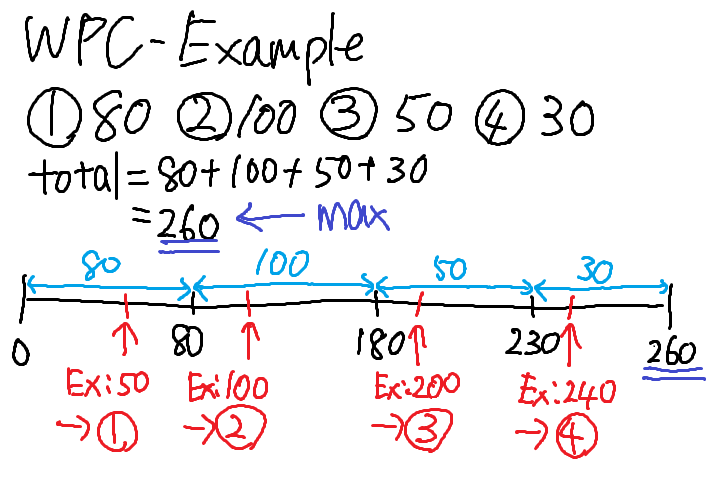 WPC-Example
① 80 ② 100 ③ 50 ④ 30
total = 80 + 100 + 50 + 30
= 260 ← max
80 100 50 30
0 80 180 230 260
Ex:50 Ex:100 Ex:200 Ex:240
→① →② →③ →④